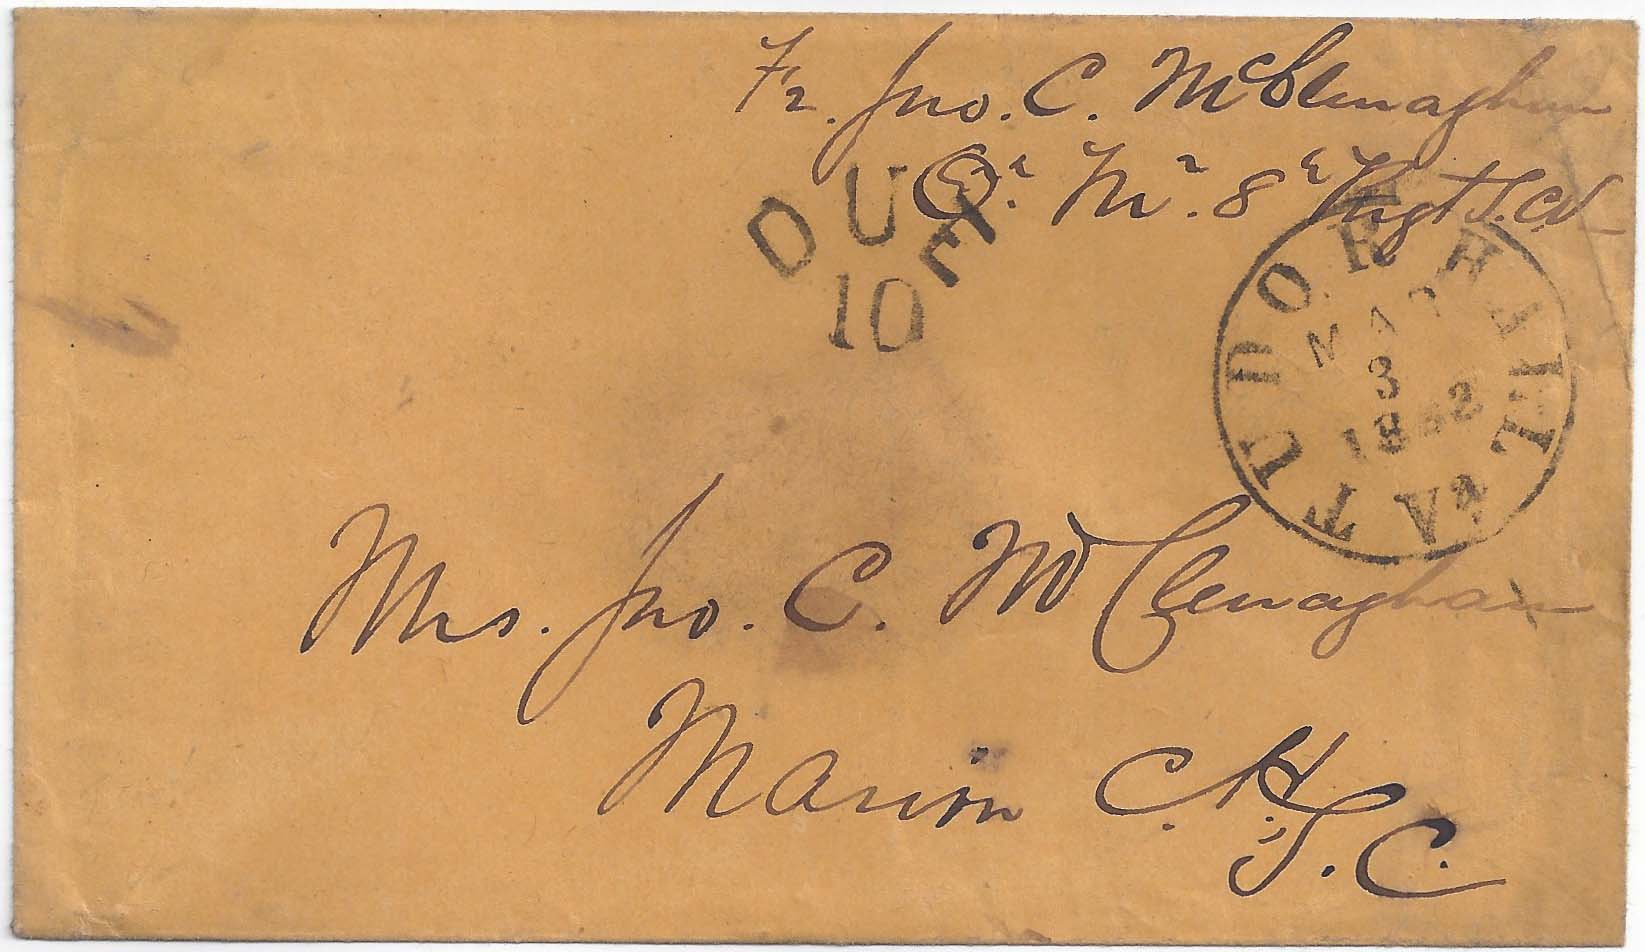 Fr. Jno. C. McClenaghan
Qr. Mr. 8th Regt S.C.V.
DUE
10
TUDOR HALL VA
MAR
3
1862
Mrs. Jno. C. McClenaghan
Marion C.H.
S.C.